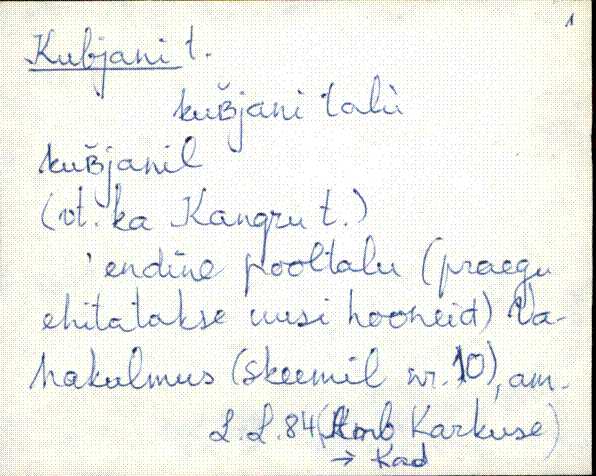 1
Kubjani t.
kuʙjani talù
kuʙjanil
(vt. ka Kangru t.)
'endine pooltalu (praegu
ehitatakse uusi hooneid) Va-
hakulmus (skeemil nr. 10), am-
L.L. 84 (Amb Karkuse)
→ Kad